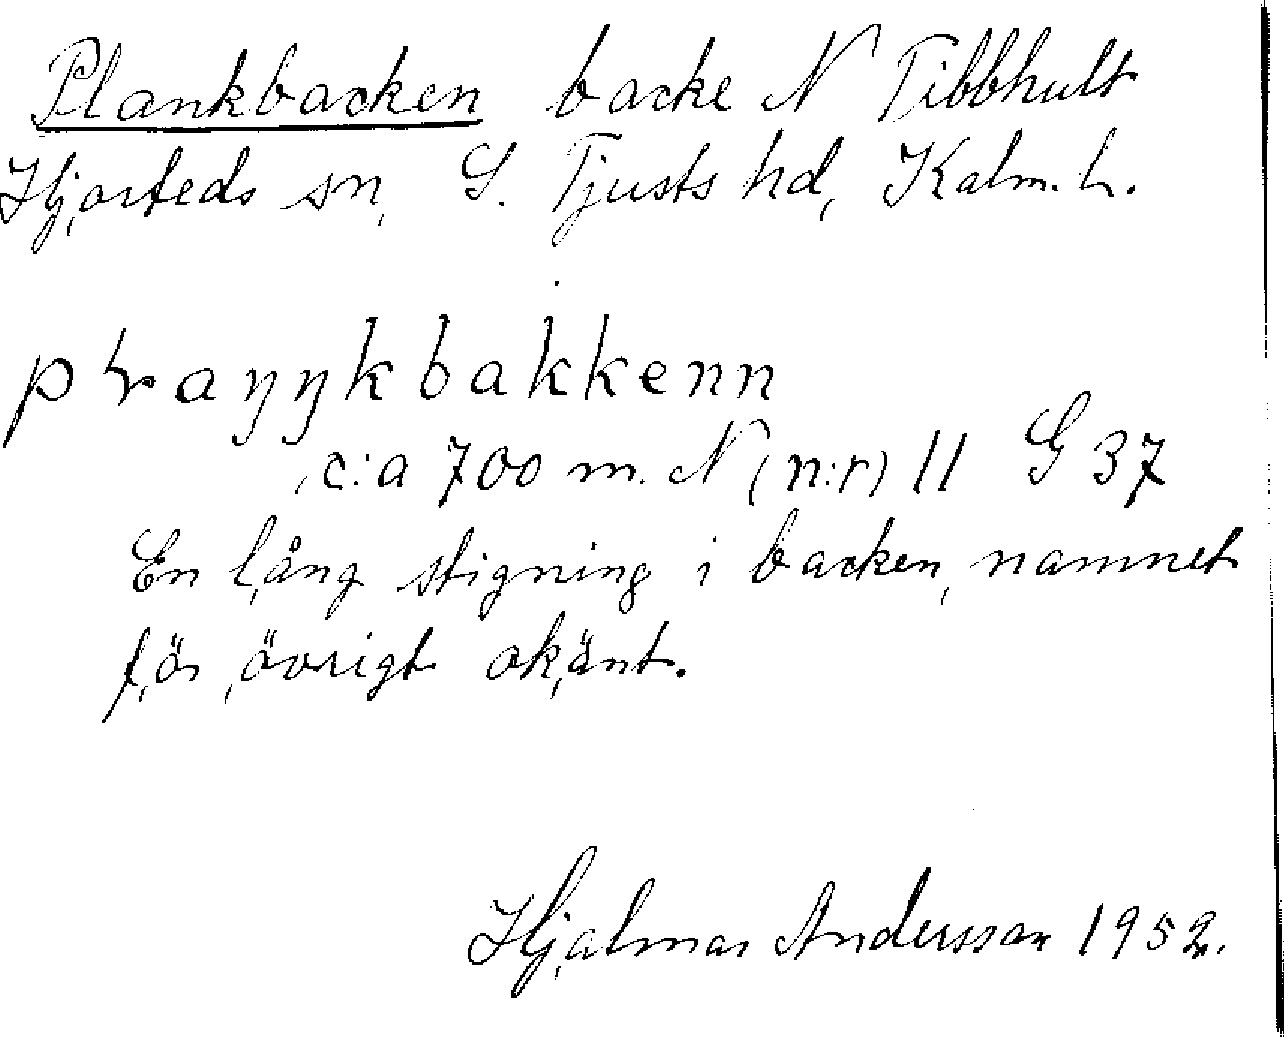 Plankbacken backe N Tibbhult
Hjorteds sn, S. Tjusts hd, Kalm. L.
plaŋŋkbakkenn
c:a 700 m. N (n:r) 11 G 37
En lång stigning i backen, namnet
för övrigt okänt.
Hjalmar Andersson 1952.